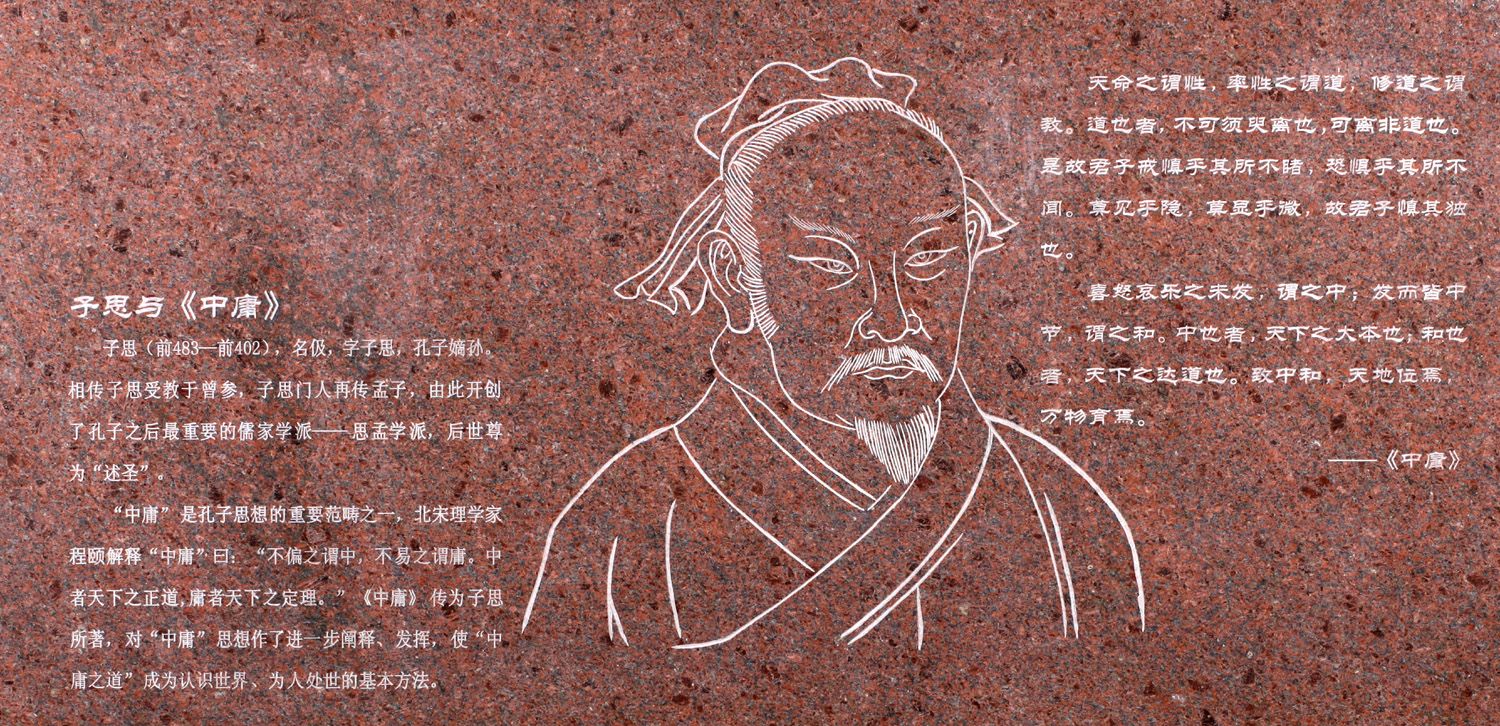 子思与《中庸》
子思（前483—前402），名伋，字子思，孔子嫡孙。
相传子思受教于曾参，子思门人再传孟子，由此开创
了孔子之后最重要的儒家学派——思孟学派，后世尊
为“述圣”。
“中庸”是孔子思想的重要范畴之一，北宋理学家
程颐解释“中庸”曰：“不偏之谓中，不易之谓庸。中
者天下之正道,庸者天下之定理。”《中庸》传为子思
所著，对“中庸”思想作了进一步阐释、发挥，使“中
庸之道”成为认识世界、为人处世的基本方法。
天命之谓性，率性之谓道，修道之谓
教。道也者，不可须臾离也，可离非道也。
是故君子戒慎乎其所不睹，恐惧乎其所不
闻。莫见乎隐，莫显乎微，故君子慎其独
也。
喜怒哀乐之未发，谓之中；发而皆中
节，谓之和。中也者，天下之大本也；和也
者，天下之达道也。致中和，天地位焉，
万物育焉。
——《中庸》